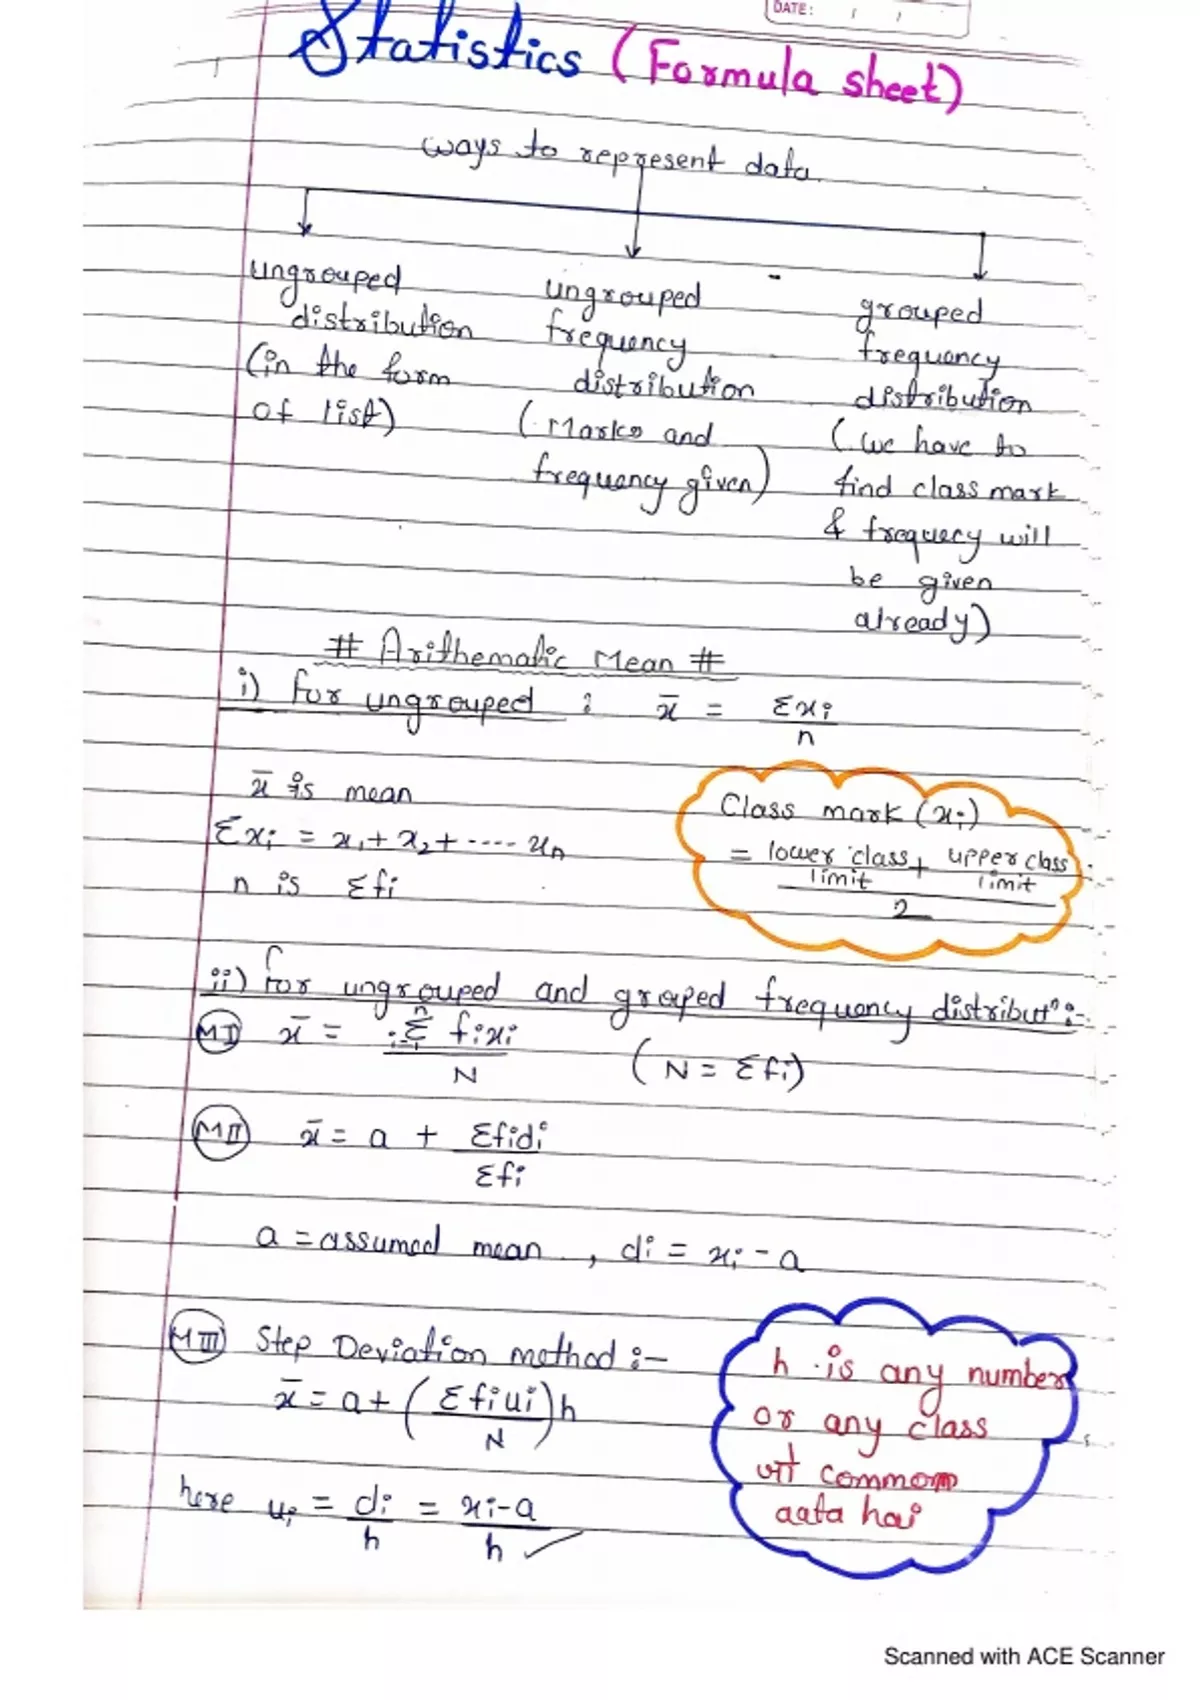 DATE: / /
Statistics (Formula sheet)
ways to represent data.
ungrouped distribution (in the form of list)
ungrouped frequency distribution (Marks and frequency given)
grouped frequency distribution (we have to find class mark & frequecy will be given already)
# Arithematic Mean #
i) for ungrouped : x̄ = Σxi / n
x̄ is mean
Σxi = x1 + x2 + ---- xn
n is Σfi
Class mark (xi)
= lower class limit + upper class limit / 2
ii) for ungrouped and grouped frequency distributⁿ :-
MI x̄ = Σ fixi / N (N = Σfi)
MII x̄ = a + Σfidi / Σfi
a = assumed mean , di = xi - a
MIII Step Deviation method :-
x̄ = a + (Σfiui / N) h
here ui = di / h = xi - a / h
h is any number
or any class
जो common
aata hai
Scanned with ACE Scanner